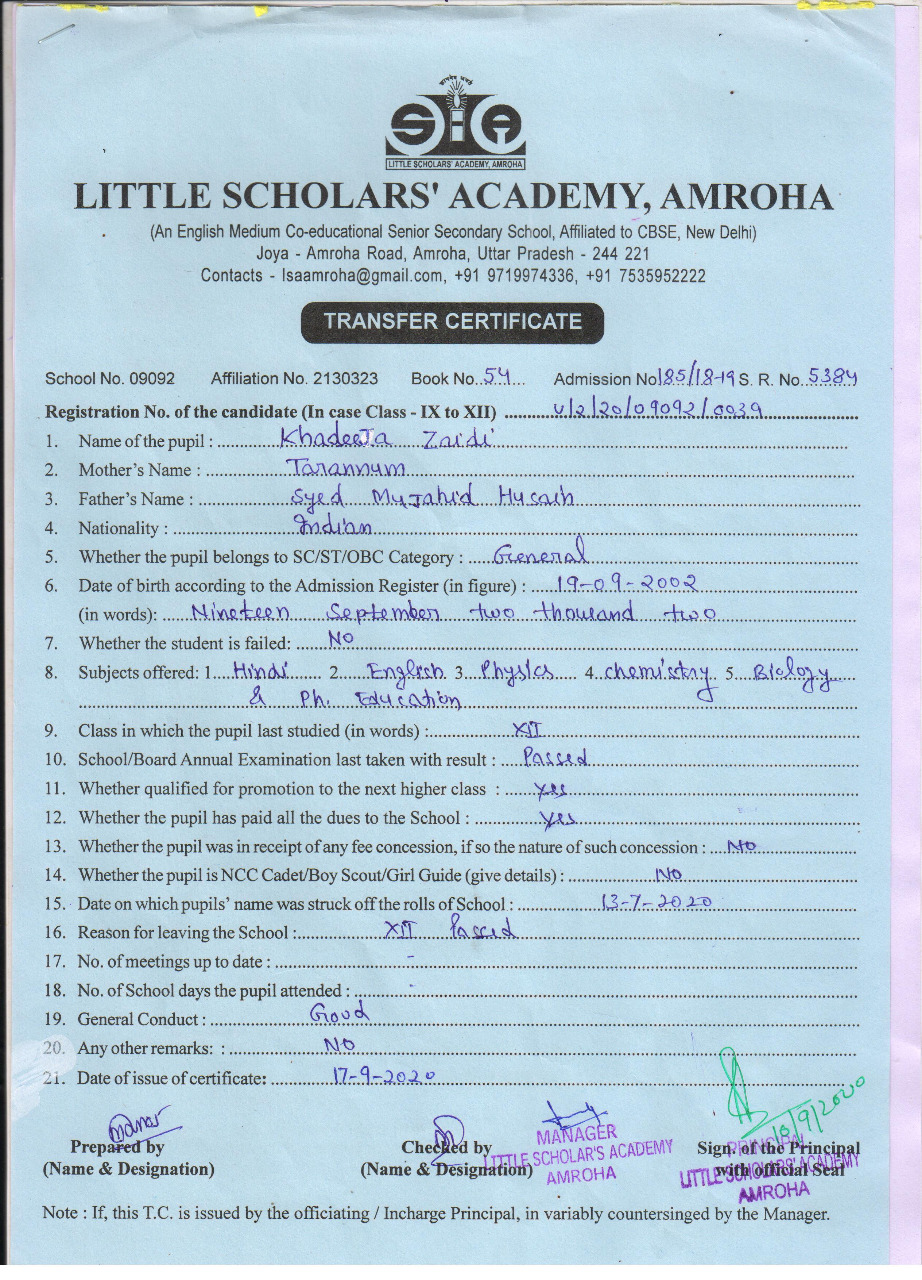 LITTLE SCHOLARS' ACADEMY, AMROHA
LITTLE SCHOLARS' ACADEMY, AMROHA
(An English Medium Co-educational Senior Secondary School, Affiliated to CBSE, New Delhi)
Joya - Amroha Road, Amroha, Uttar Pradesh - 244 221
Contacts - lsaamroha@gmail.com, +91 9719974336, +91 7535952222
TRANSFER CERTIFICATE
School No. 09092 Affiliation No. 2130323 Book No. 54 Admission No 185/18-19 S. R. No. 5384
Registration No. of the candidate (In case Class - IX to XII) U/2/20/09092/0039
1. Name of the pupil : Khadeeja Zaidi
2. Mother's Name : Tarannum
3. Father's Name : Syed Mujahid Husain
4. Nationality : Indian
5. Whether the pupil belongs to SC/ST/OBC Category : General
6. Date of birth according to the Admission Register (in figure) : 19-09-2002
(in words): Nineteen September two thousand two
7. Whether the student is failed: No
8. Subjects offered: 1 Hindi 2 English 3 Physics 4 chemistry 5 Biology
& Ph. Education
9. Class in which the pupil last studied (in words) : XII
10. School/Board Annual Examination last taken with result : Passed
11. Whether qualified for promotion to the next higher class : yes
12. Whether the pupil has paid all the dues to the School : yes
13. Whether the pupil was in receipt of any fee concession, if so the nature of such concession : No
14. Whether the pupil is NCC Cadet/Boy Scout/Girl Guide (give details) : No
15. Date on which pupils' name was struck off the rolls of School : 13-7-2020
16. Reason for leaving the School : XII Passed
17. No. of meetings up to date : -
18. No. of School days the pupil attended : -
19. General Conduct : Good
20. Any other remarks: : NO
21. Date of issue of certificate: 17-9-2020
/9/2020
Prepared by Checked by Sign. of the Principal
(Name & Designation) (Name & Designation) with official Seal
MANAGER
LITTLE SCHOLAR'S ACADEMY
AMROHA
PRINCIPAL
LITTLE SCHOLARS' ACADEMY
AMROHA
Note : If, this T.C. is issued by the officiating / Incharge Principal, in variably countersinged by the Manager.